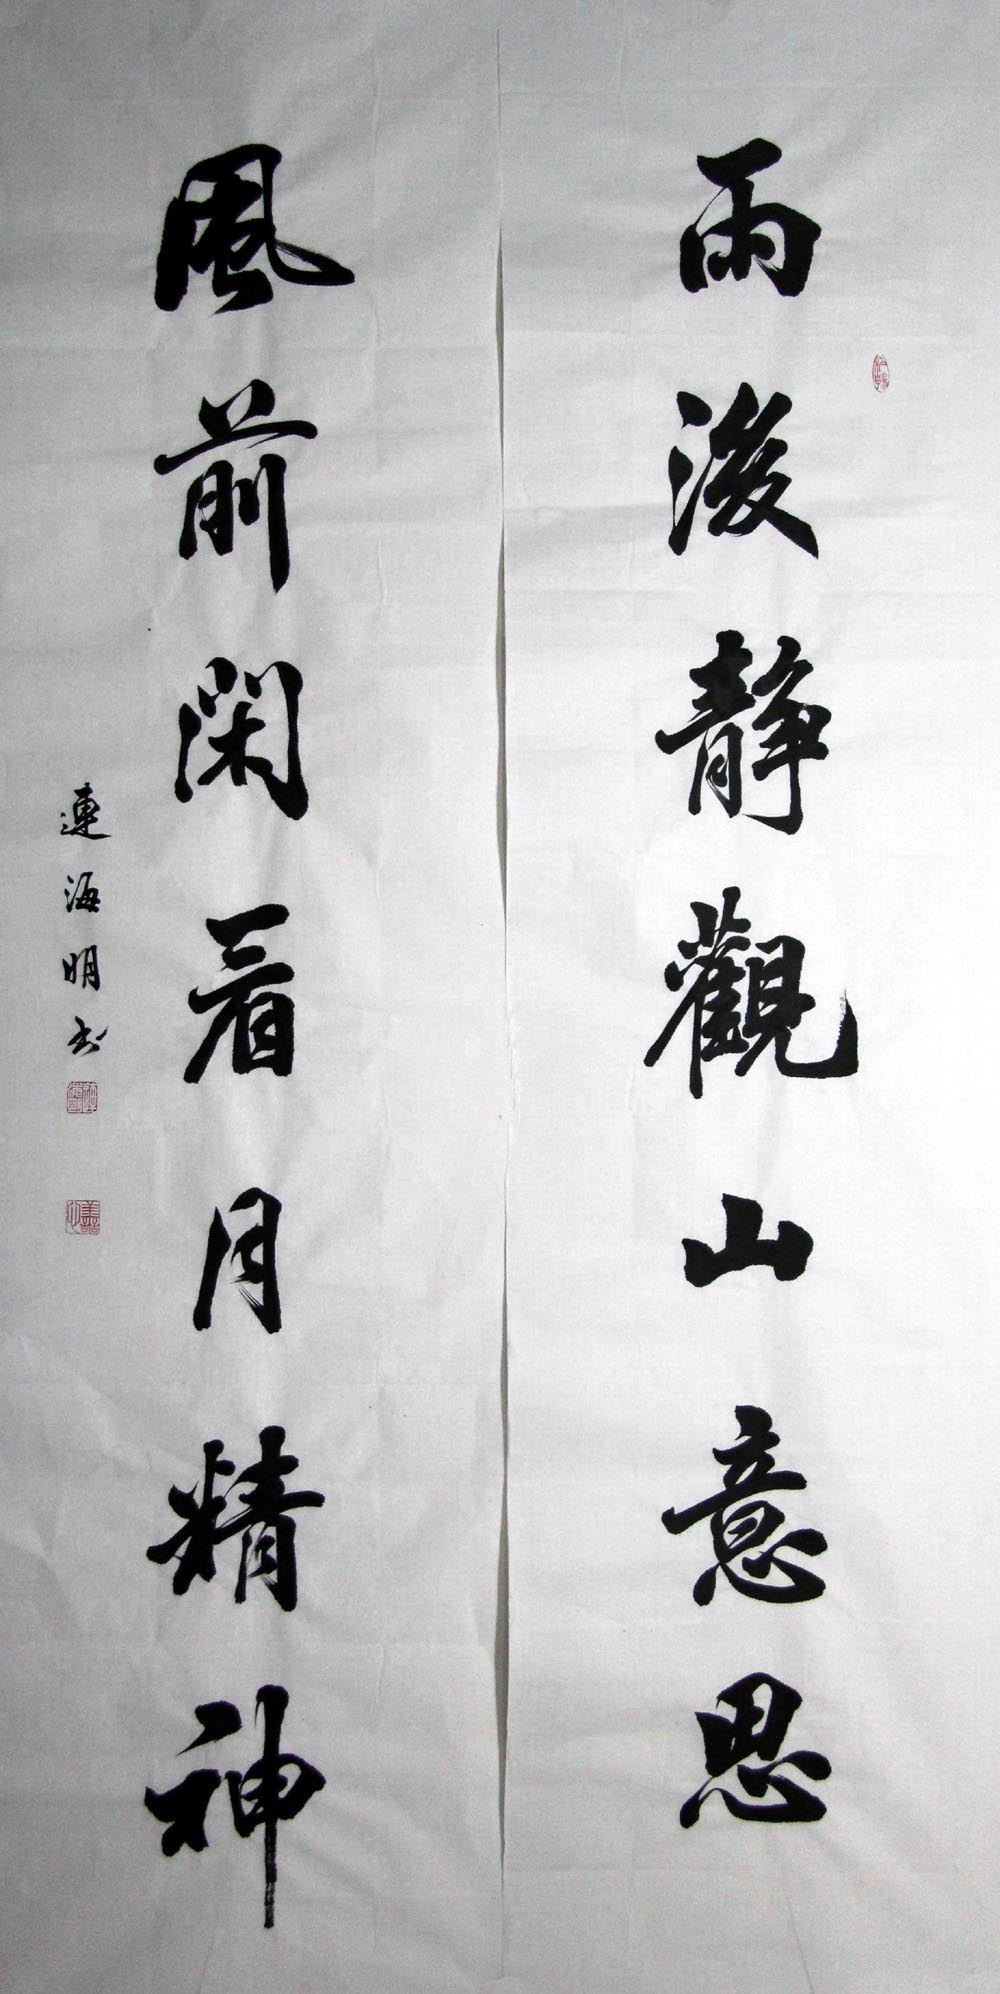 雨後静觀山意思
風前閑看月精神
連海明书